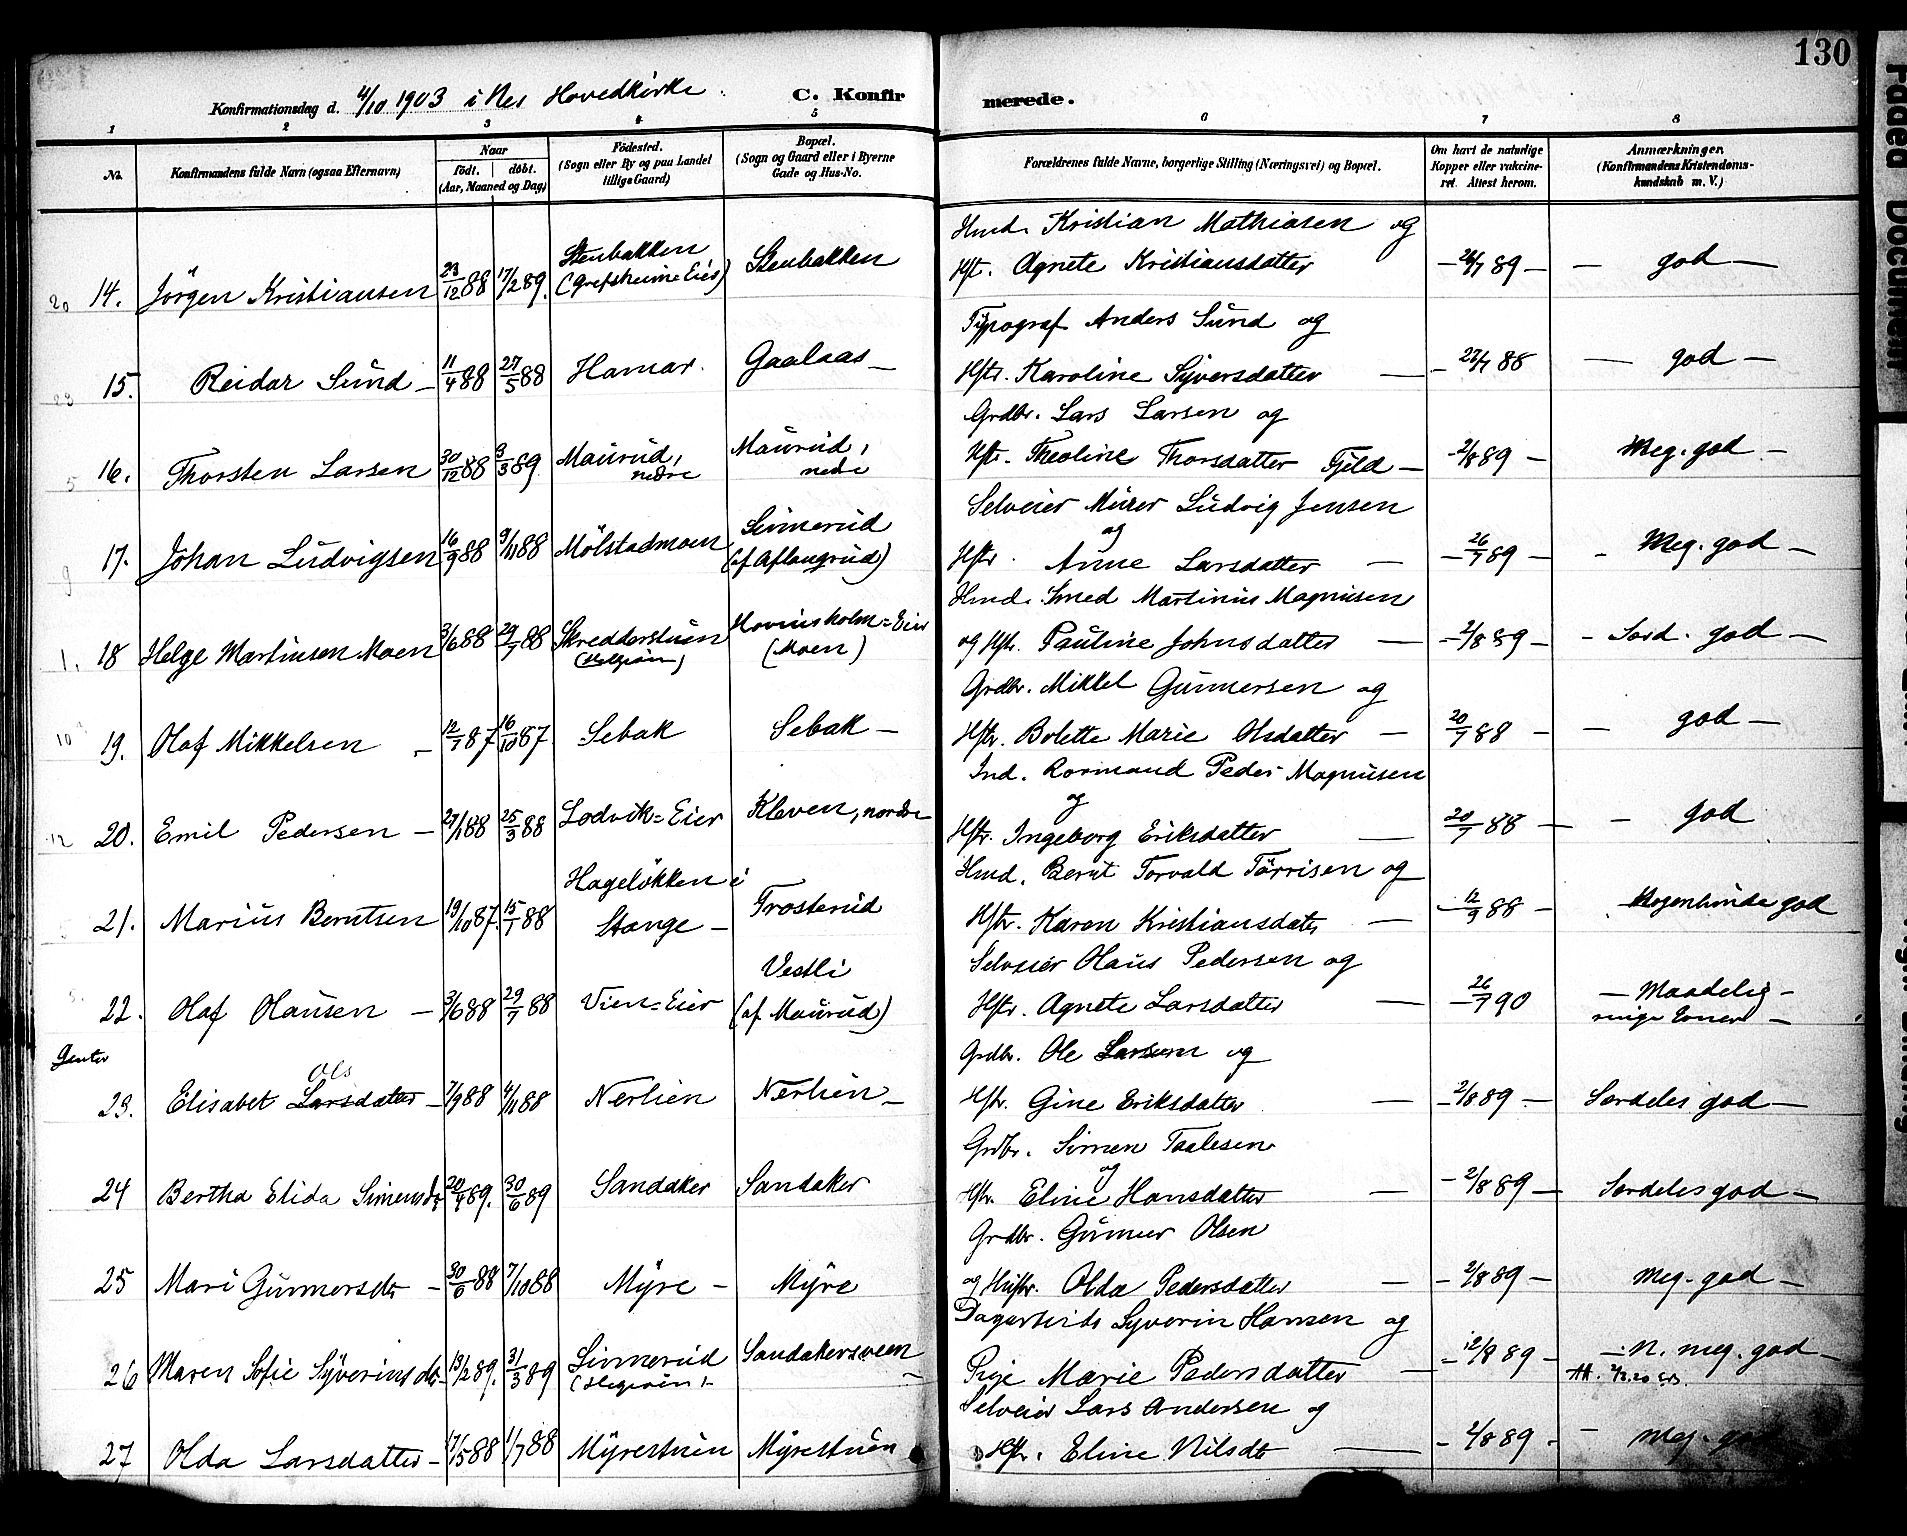 130
Konfirmationsdag d. 4/10 1903 i Nes Hovedkirke.
C. Konfirmerede.
1 2 3 4 5 6 7 8
No. Konfirmandens fulde Navn (ogsaa Efternavn) Naar født. døbt. (Aar, Maaned og Dag) Fødested. (Sogn eller By og paa Landet tillige Gaard) Bopæl. (Sogn og Gaard eller i Byerne Gade og Hus-No. Forældrenes fulde Navne, borgerlige Stilling (Næringsvei) og Bopæl. Om havt de naturlige Kopper eller vakcineret. Attest herom. Anmærkninger. (Konfirmandens Kristendomskundskab m. V.)
Hmd. Kristian Mathiasen og
20 14. Jörgen Kristiansen 23/12 88 17/2 89. Stenbakken (Grefsheim=Eier) Stenbakken Hft. Agnete Kristiansdatter — 26/7 89 — — god —
Typograf Anders Sund og
23 15. Reidar Sund — 11/4 88 27/5 88 Hamar. Gaalaas — Hftr. Karoline Syversdatter — — 27/7 88 — god —
Grdbr. Lars Larsen og
5 16. Thorsten Larsen 30/12 88 3/3 89 Maurud, nedre Maurud, nedre Hftr. Theoline Thorsdatter Fjeld — — 2/8 89 — Meg. god —
Selveier Murer Ludvig Jensen og
9 17. Johan Ludvigsen 16/9 88 9/11 88 Mölstadmoen Simerud (af Aflangrud) Hftr. Anne Larsdatter — — 26/7 89 — — Meg. god —
Hmd. Smed Martinius Magnusen
1. 18 Helge Martinsen Moen 3/6 88 29/7 88 Skredderstuen (Helgøen) Hovinsholm=Eier (Moen) og Hftr. Pauline Johnsdatter — — 2/8 89 — — Særd. god —
Grdbr. Mikkel Gunnersen og
10 19. Olaf Mikkelsen — 12/7 87 16/10 87 Sebak Sebak — Hftr. Bolette Marie Olsdatter — 20/7 88 — — god —
Ind. Rormand Peder Magnusen og
12 20. Emil Pedersen — 27/1 88 25/3 88 Lodvik=Eier Kleven, nordre Hftr. Ingeborg Eriksdatter — 20/7 88 — — god
Hmd. Bernt Torvald Törrisen og
21. Marius Berntsen 19/10 87. 15/1 88 Hagelökken i Stange — Frosterud Hftr. Karen Kristiansdatr — — 12/9 88 — Nogenlunde god
Selveier Olaus Pedersen og
22. Olaf Olausen — 3/6 88 29/7 88 Vien=Eier Vestli (af Maurud) Hftr. Agnete Larsdatter — 26/7 90 — Maadelig — ringe Evner —
Genter
Grdbr. Ole Larsen og
23. Elisabet Larsdatter Ols — 7/9 88 4/11 88 Nerlien Nerlien — Hftr. Gine Eriksdatter — — 2/8 89 — Særdeles god —
Grdbr. Simen Taalesen og
24 Bertha Elida Simensdr 20/4 89. 30/6 89 Sandaker Sandaker Hftr. Eline Hansdatter — — 2/8 89 — Særdeles god —
Grdbr. Gunner Olsen
25 Mari Gunnersdr — 30/6 88 7/10 88 Myre — Myre og Hustr. Olda Pedersdatter — — 2/8 89 — Meg. god —
Dagarbeider Syverin Hansen og
26 Maren Sofie Syverinsdr. 13/2 89. 31/3 89 Simerud (Helgøen) Sandakersveen — Pige Marie Pedersdatter — — 12/8 89 — — N. meg. god —
Selveier Lars Andersen og
27 Olda Larsdatter — 17/5 88 1/7 88 Myrestuen Myrestuen Hftr. Eline Nilsdr — — 2/8 89 — — Meg. god